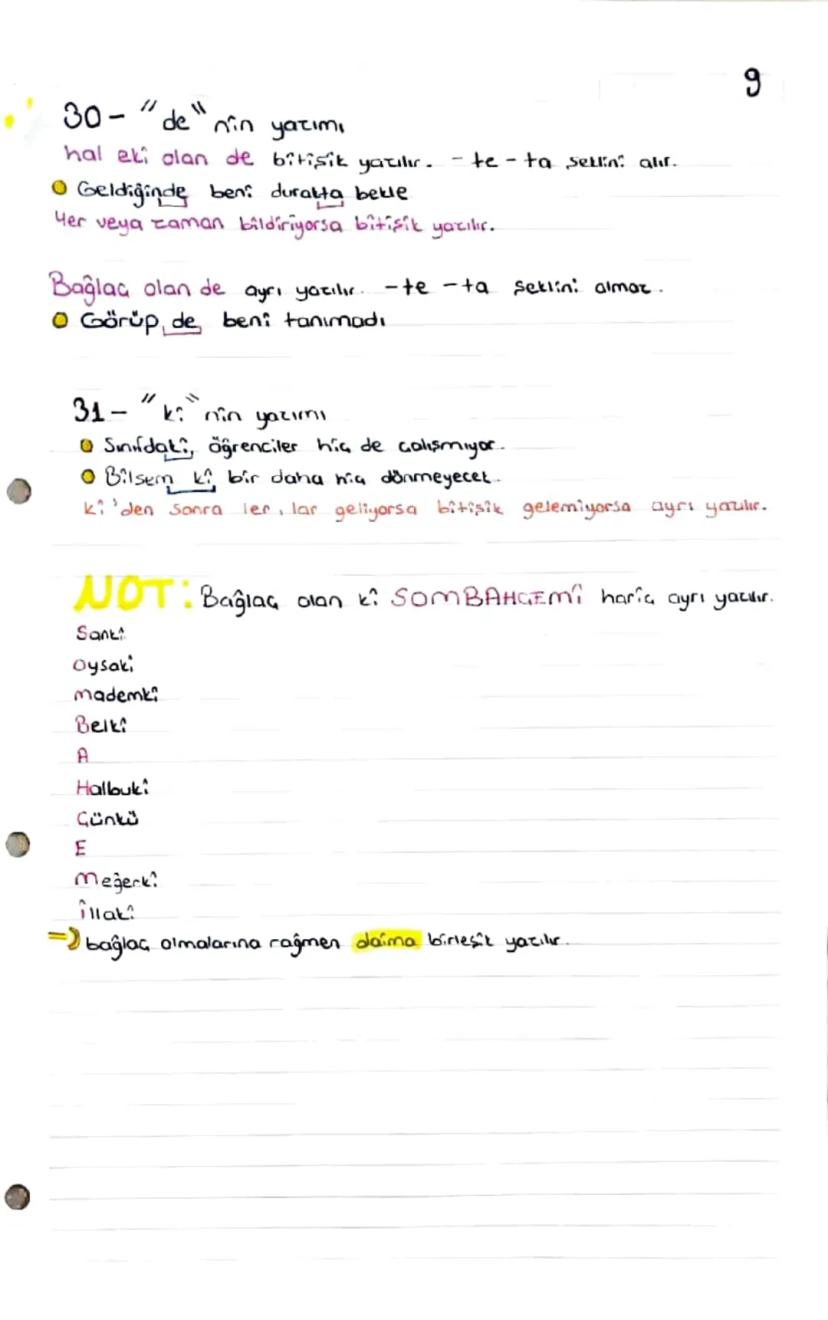 9
30- "de" nin yazımı
hal eki olan de bitişik yazılır. -te -ta şeklini alır.
Geldiğinde beni durakta bekle
Yer veya zaman bildiriyorsa bitişik yazılır.
Bağlaç olan de ayrı yazılır. -te -ta şeklini almaz.
Görüp de beni tanımadı
31- "ki" nin yazımı
Sınıfdaki öğrenciler hiç de çalışmıyor.
Bilsem ki bir daha hiç dönmeyecek.
ki'den sonra ler, lar geliyorsa bitişik gelemiyorsa ayrı yazılır.
NOT: Bağlaç olan ki SOMBAHÇEMİ hariç ayrı yazılır.
Sanki
Oysaki
Mademki
Belki
A
Halbuki
Çünkü
E
Meğerki
İllaki
=> bağlaç olmalarına rağmen daima birleşik yazılır.